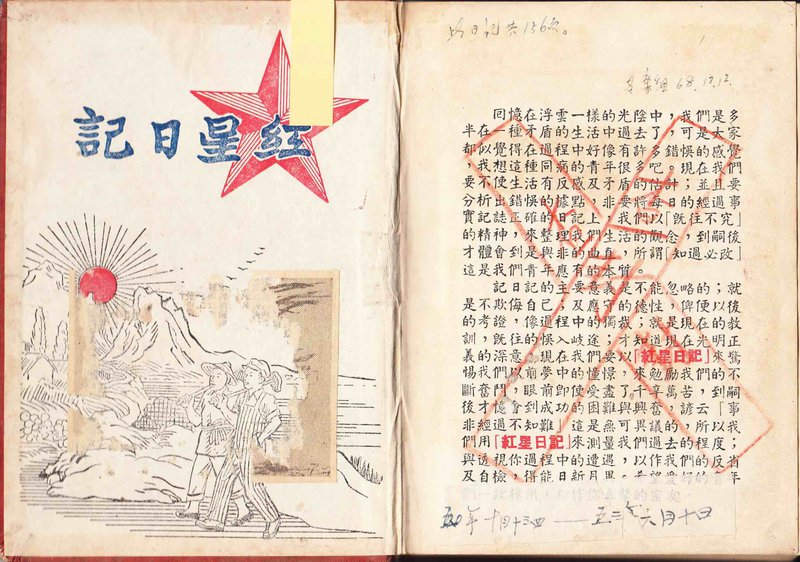 紅星日記
此日記共156頁。
68.12.12.
回憶在浮雲一樣的光陰中，我們是多
半在一種矛盾的生活中過去了，可是大家
都似覺得在過程中好像有許多錯悞的感覺
，我想這種同病的青年很多吧。現在我們
要不使生活有反感及矛盾的估計；並且要
分析出錯悞的據點，非要將每日的經過事
實記誌正確的日記上，我們以「既往不究」
的精神，來整理我們生活的觀念，到嗣後
才體會到是與非的曲直，所謂「知過必改」
這是我們青年應有的本質。
記日記的主要意義是不能忽略的；就
是不欺侮自己，及應守的德性，俾便以後
的考證，像過程中的獨裁；就是現在的教
訓，既往的悞入歧途；才知道現在光明正
義的深意。現在我們要以「紅星日記」來警
惕我們以前夢中的憧憬，來勉勵我們的不
斷奮鬥，眼前即使受盡了千辛萬苦，到嗣
後才憶會到成功的困難與興奮，諺云「事
非經過不知難」這是無可異議的，所以我
們用「紅星日記」來測量我們過去的程度；
與透視你過程中的遭遇，以作我們的反省
及自檢，得能日新月
年十月十三日——五三年六月十日